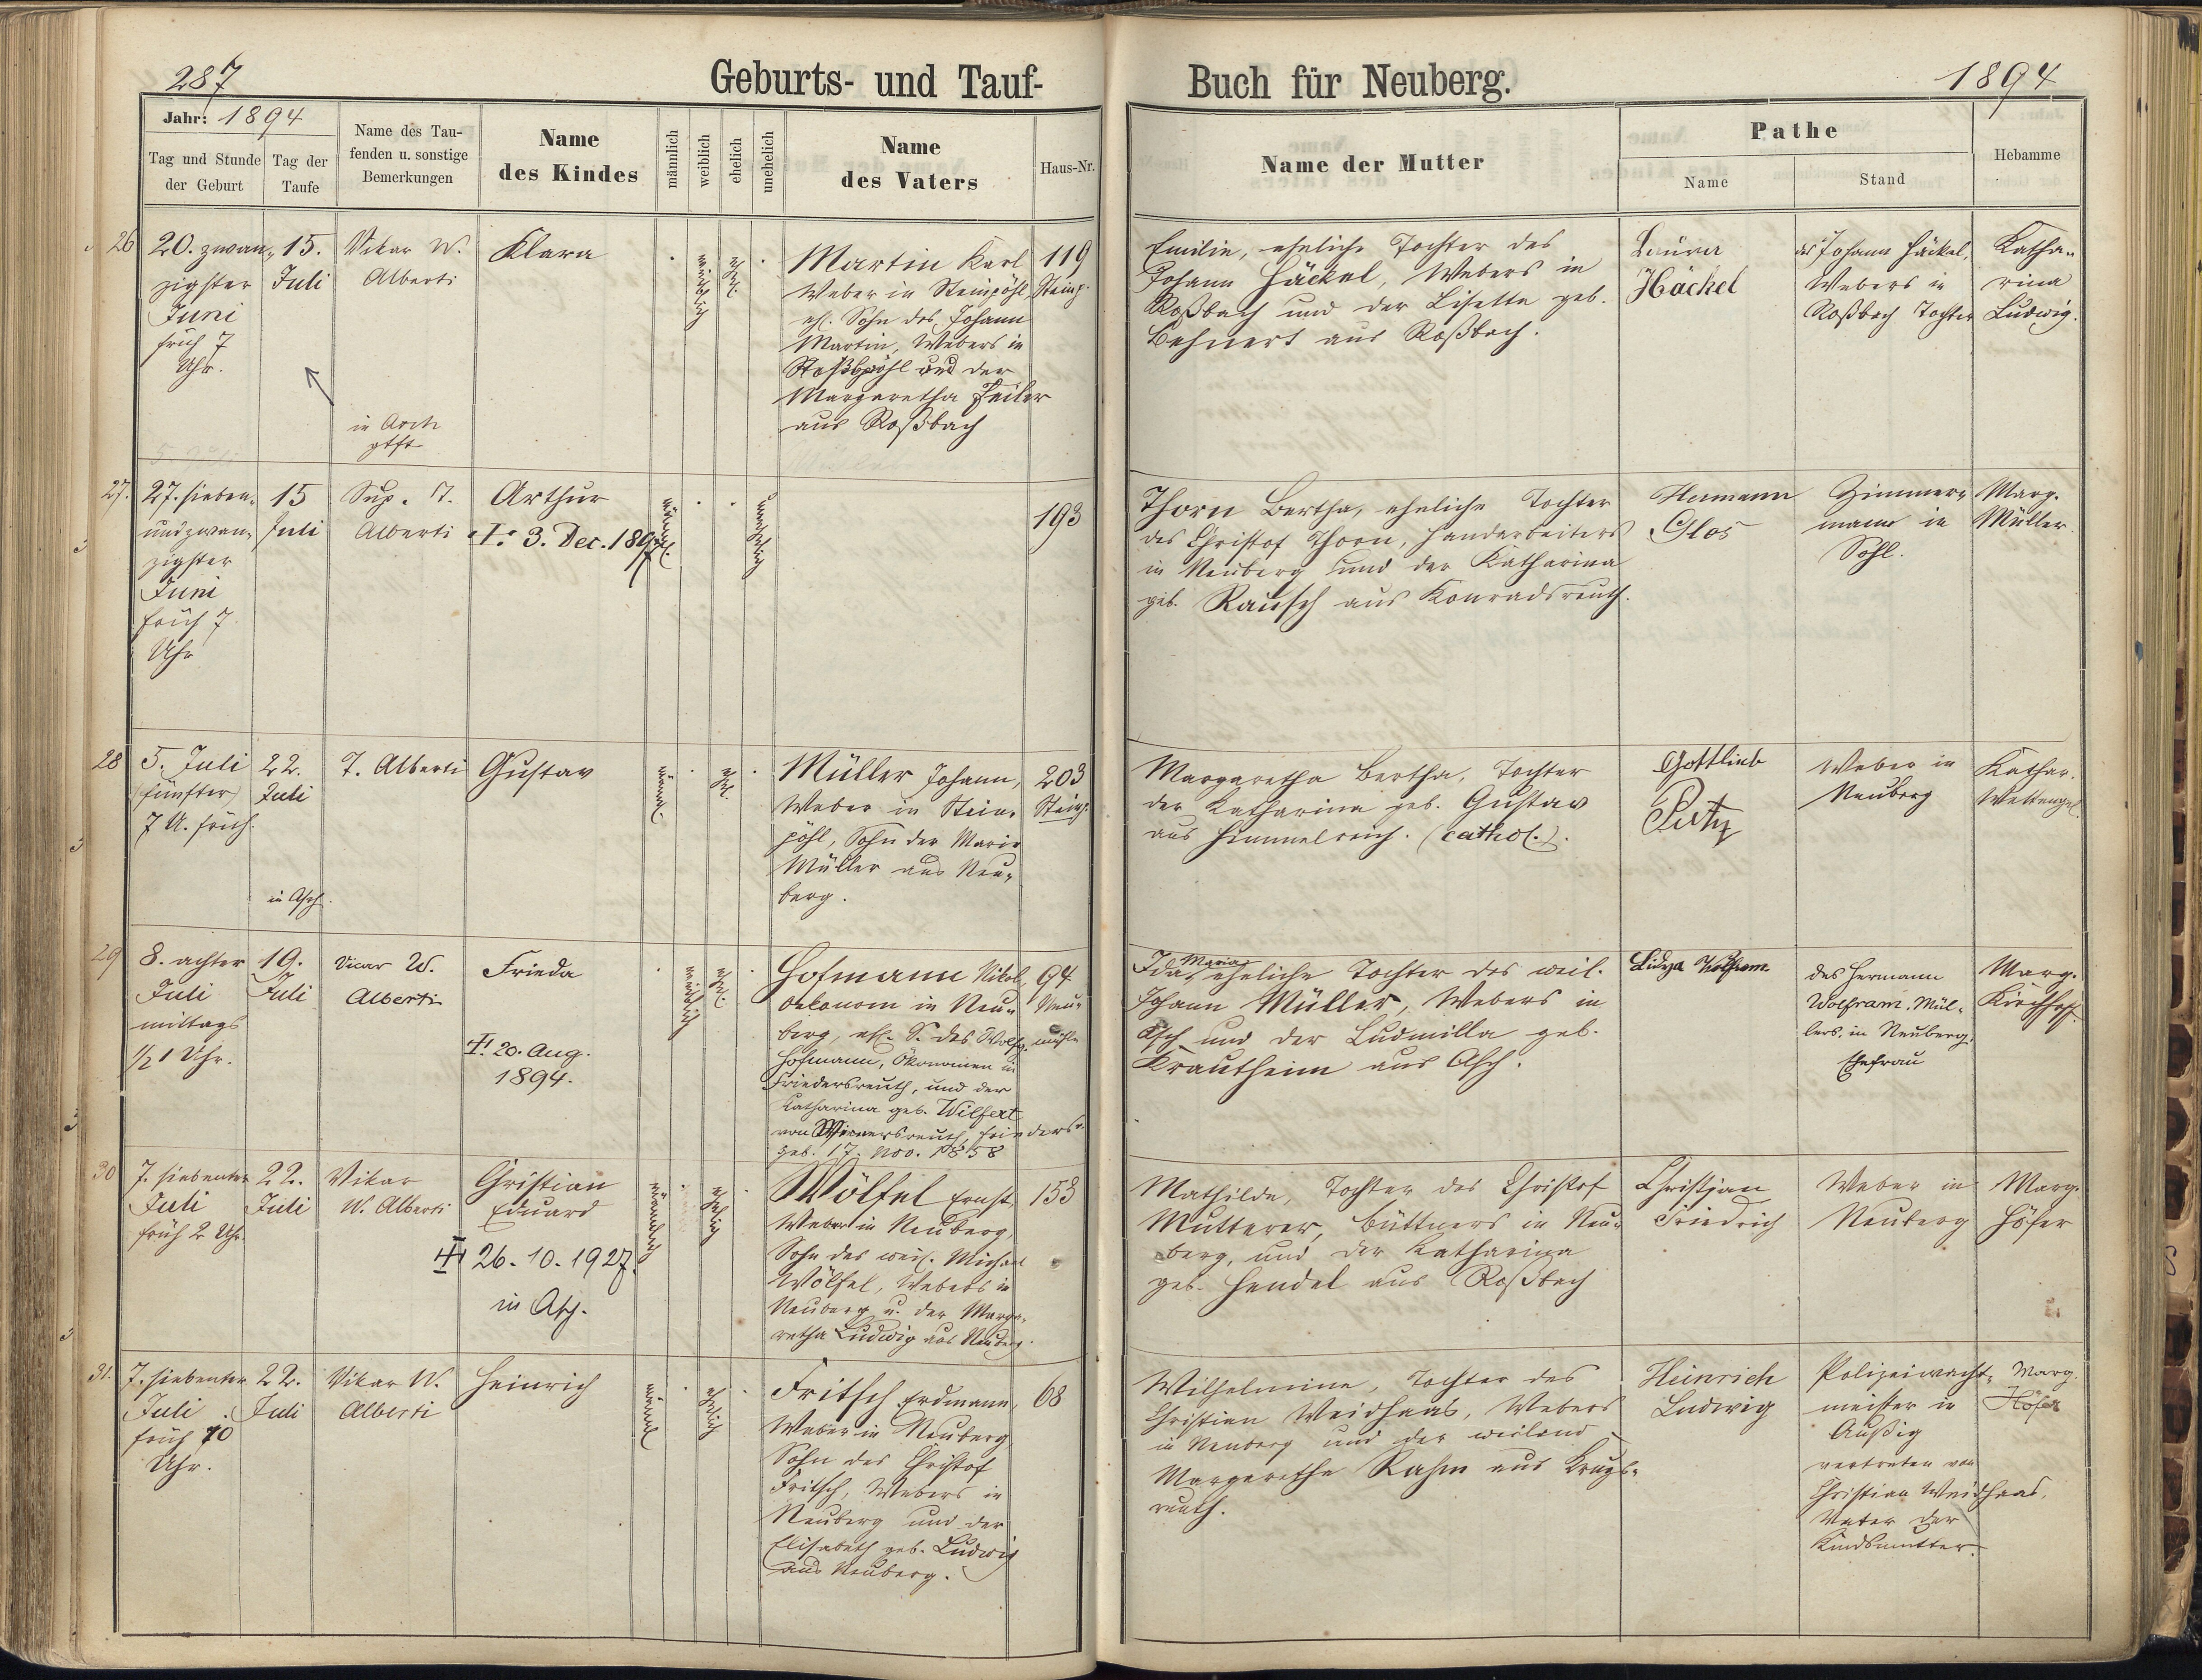 287
Geburts- und Tauf-
Buch für Neuberg.
1894
Jahr: 1894
Tag und Stunde
der Geburt
Tag der
Taufe
Name des Tau-
fenden u. sonstige
Bemerkungen
Name
des Kindes
männlich
weiblich
ehelich
unehelich
Name
des Vaters
Haus-Nr.
Name der Mutter
Pathe
Name
Stand
Hebamme
26
20. zwan-
zigster
Juni
früh 7
Uhr.
15.
Juli
Vikar W.
Alberti
in Asch
Klara
weiblich
ehl.
Martin Karl
Weber in Steinpöhl,
ehl. Sohn des Johann
Martin, Webers in
und der
Margaretha Feiler
aus Roßbach
119
Steinp.
Emilie, eheliche Tochter des
Johann Häckel, Webers in
Roßbach und der Lisetta geb.
Behnert aus Roßbach.
Laura
Häckel
des Johann Häckel,
Webers in
Roßbach Tochter
Katha-
rina
Ludwig.
27.
27. sieben-
undzwan-
zigster
Juni
früh 7
Uhr
15
Juli
Sup. T.
Alberti
Arthur
3. Dec. 1897
männl.
unehelich
193
Thorn Bertha, eheliche Tochter
des Christof Thorn, Handarbeiters
in Neuberg und der Katharina
geb. Rausch aus Konradsreuth.
Hermann
Glos
Zimmer-
mann in
Sohl.
Marg.
Müller
28
5. Juli
(fünfter)
7 U. früh.
22.
Juli
in Asch.
T. Alberti
Gustav
männl.
ehl.
Müller Johann,
Weber in Stein-
pöhl, Sohn der Marie
Müller aus Neu-
berg.
203
Steinp.
Margaretha Bertha, Tochter
der Katharina geb. Gustav
aus Himmelreich. (cathol.).
Gottlieb
Putz
Weber in
Neuberg
Kathar.
Wettengel
29
8. achter
Juli
mittags
1/2 1 Uhr.
19.
Juli
Vicar W.
Alberti
Frieda
20. Aug.
1894.
weiblich
ehl.
Hofmann Nikol,
Oekonom in Neu-
berg, ehl. S. des Wolfg.
Hofmann, Ökonomen in
Friedersreuth, und der
Katharina geb. Wilfert
von Wernersreuth, Friedersr.
geb. 17. Nov. 1858
94
Neu-
mühle
Ida Maria, eheliche Tochter des weil.
Johann Müller, Webers in
Asch und der Ludmilla geb.
Krautheim aus Asch.
Lidya Wolfram.
des Hermann
Wolfram, Mül-
lers, in Neuberg.
Ehefrau
Marg.
Kirchhof.
30
7. siebenter
Juli
früh 2 Uhr.
22.
Juli
Vikar
W. Alberti
Christian
Eduard
26. 10. 1927.
in Asch.
männlich
ehelich
Wölfel Ernst,
Weber in Neuberg,
Sohn des weil. Michael
Wölfel, Webers in
Neuberg u. der Marga-
retha Ludwig aus Neuberg.
153
Mathilde, Tochter des Christof
Mutterer, Büttners in Neu-
berg, und der Katharina
geb. Hendel aus Roßbach
Christian
Friedrich
Weber in
Neuberg
Marg.
Höfer
31.
7. siebenter
Juli
früh 10
Uhr.
22.
Juli
Vikar W.
Alberti
Heinrich
männl.
ehelich
Fritsch Erdmann,
Weber in Neuberg
Sohn des Christof
Fritsch, Webers in
Neuberg und der
Elisabeth geb. Ludwig
aus Neuberg.
68
Wilhelmine, Tochter des
Christian Weidhaas, Webers
in Neuberg und der weiland
Margarethe Rahm aus Krugs-
reuth.
Heinrich
Ludwig
Polizeiwacht-
meister in
Außig
vertreten von
Christian Weidhaas,
Vater der
Kindsmutter.
Marg.
Höfer